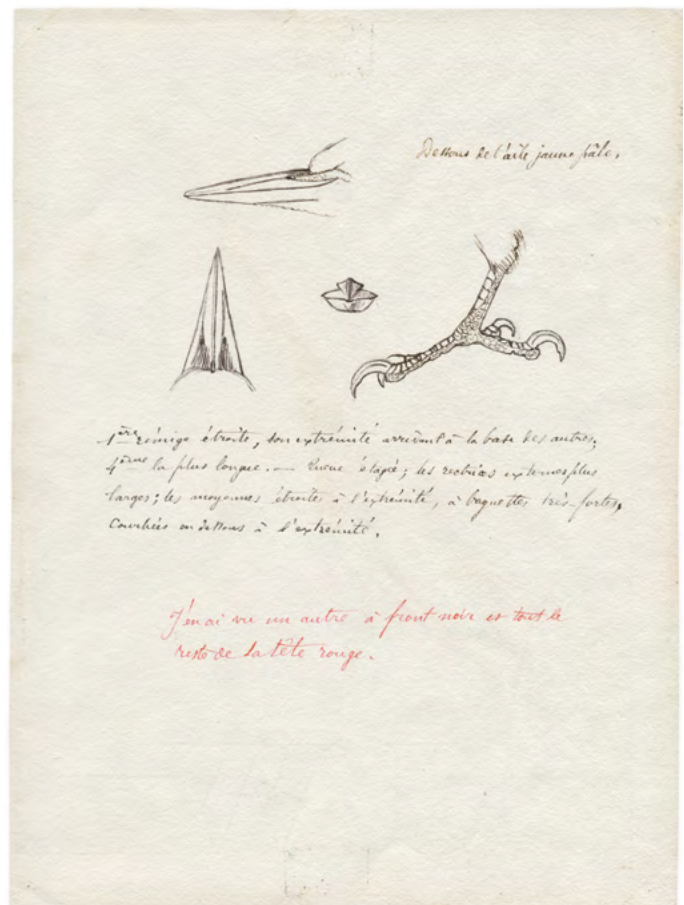 Dessous de l'aile jaune pâle.
1ère rémige étroite, son extrémité arrivant à la base des autres;
4ème la plus longue. — Queue étagée; les rectrices externes plus
larges; les moyennes étroites à l'extrémité, à baguettes très-fortes,
Courbées en dessous à l'extrémité.
J'en ai vu un autre à front noir et tout le
reste de la tête rouge.